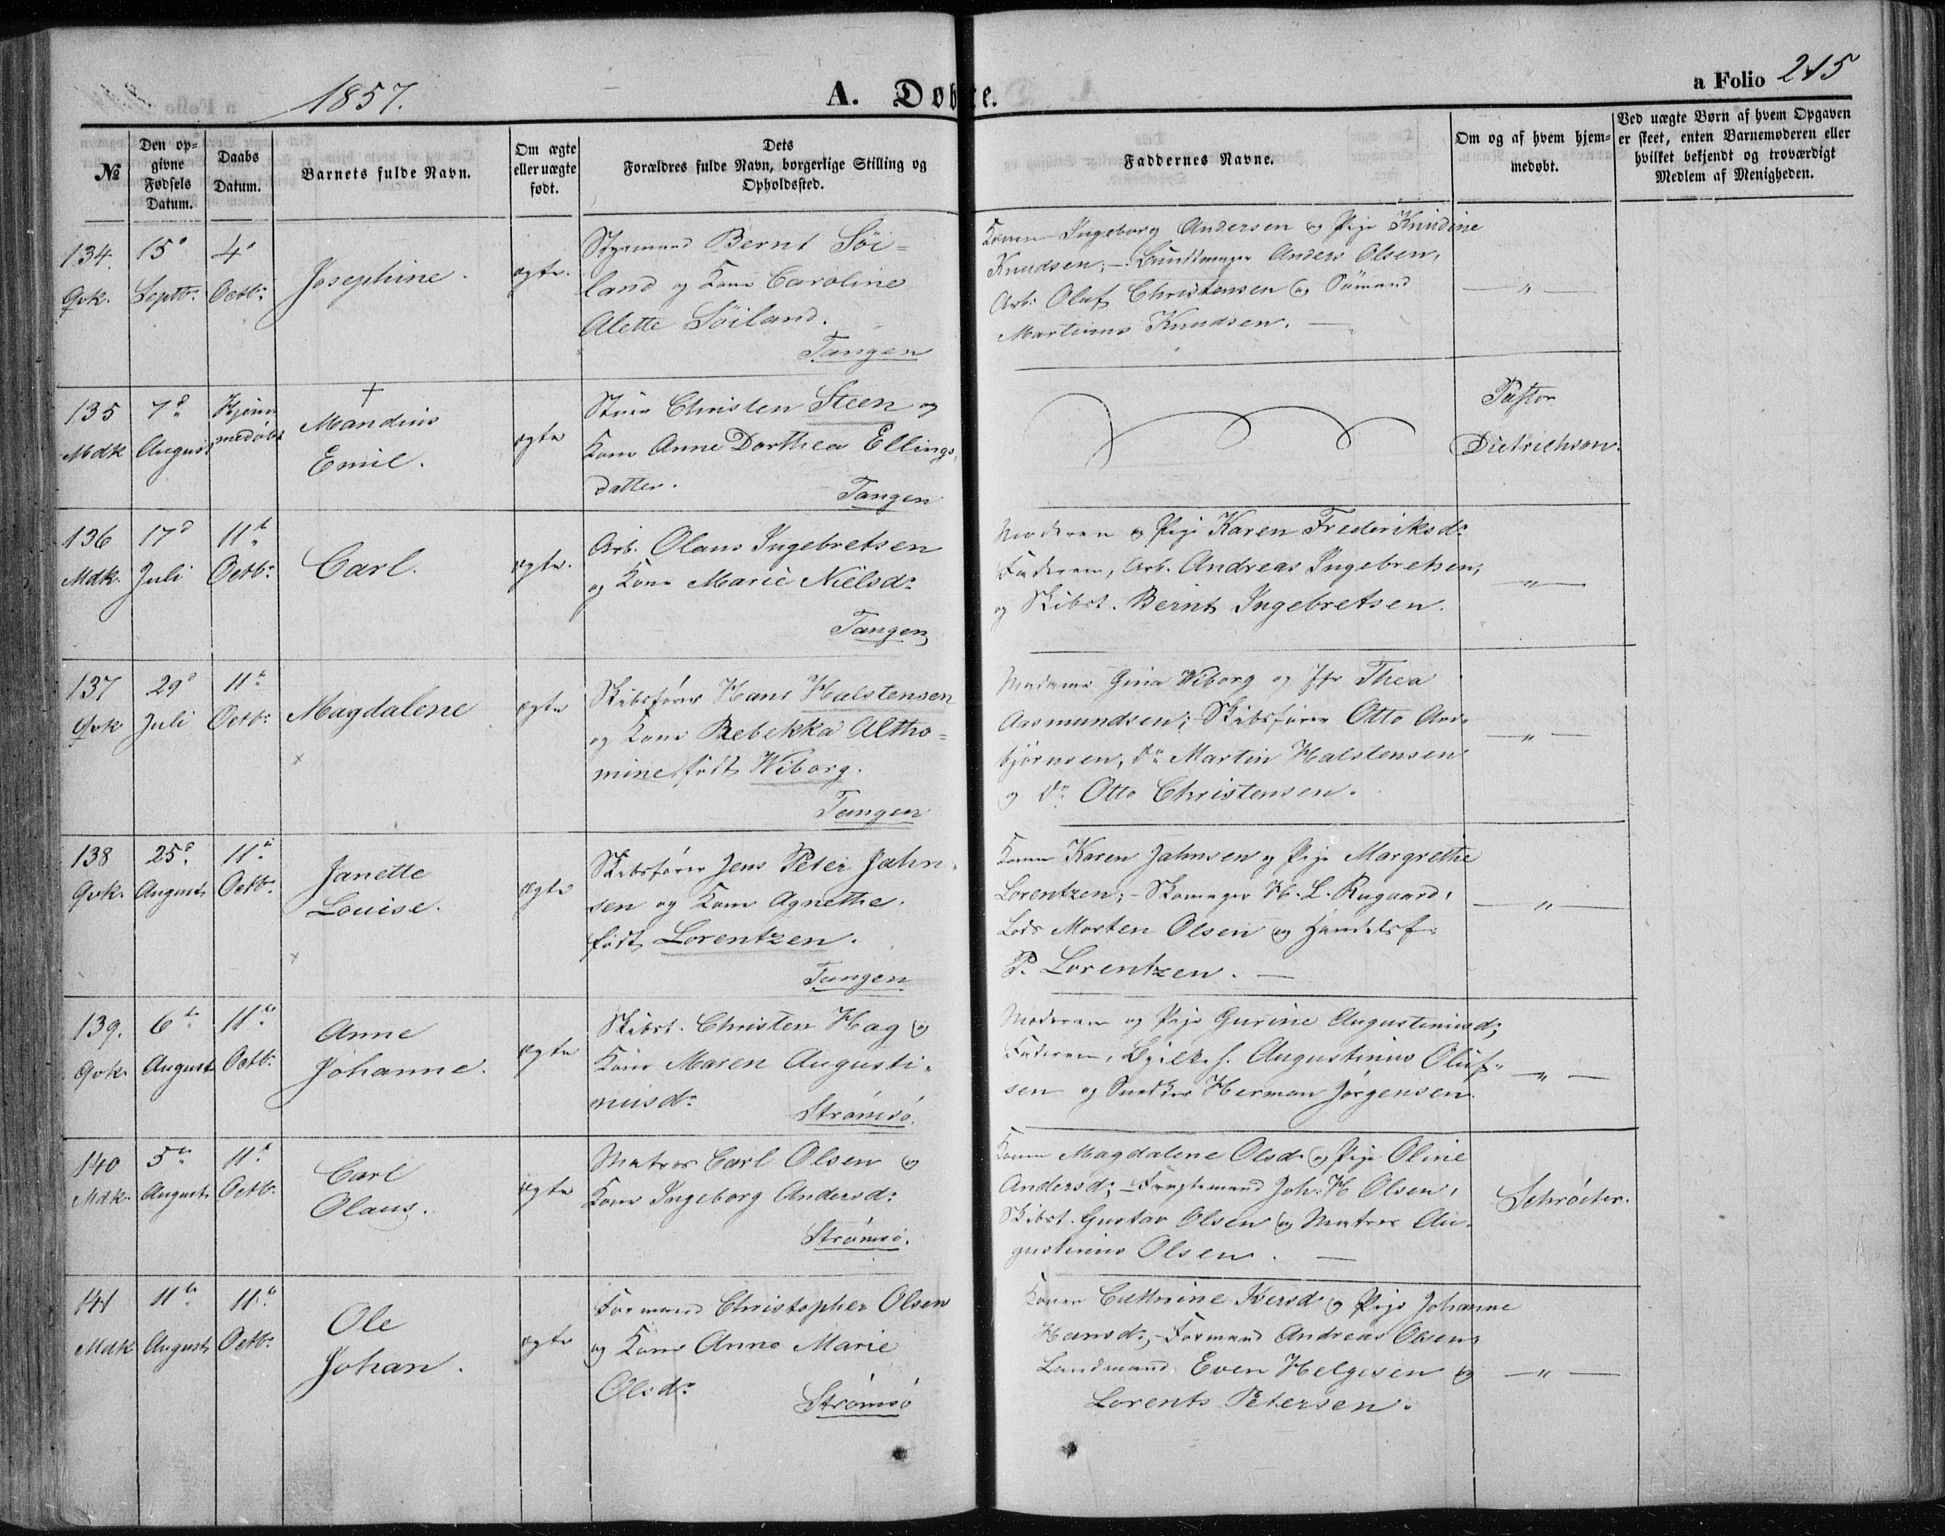 1857.
A. Døbte.
a Folio 215
№
Den op-
givne
Fødsels
Datum.
Daabs
Datum.
Barnets fulde Navn.
Om ægte
eller uægte
født.
Dets
Forældres fulde Navn, borgerlige Stilling og
Opholdssted.
Faddernes Navne.
Om og af hvem hjem-
medøbt.
Ved uægte Børn af hvem Opgaven
er skeet, enten Barnemoderen eller
hvilket bekjendt og troværdigt
Medlem af Menigheden.
134.
Qvk.
15de
Septbr.
4de
Octbr.
Josephine.
ægte.
Styrmand Bernt Søi-
land og Kone Caroline
Alette Søiland.
Tangen
Konen Ingeborg Andersen og Pige Knudine
Knudsen; - Anders Olsen,
Arb. Oluf Christensen og Sømand
Martinus Knudsen. —
— " —
135
Mdk
7de
August
Hjem
medøbt
+
Mandius
Emil.
ægte
Christen Steen og
Kone Anne Dorthea Ellings-
datter.
Tangen
Pastor
Dietrichson.
136
Mdk.
17de
Juli
11te
Octbr.
Carl.
ægte.
Arb. Olaus Ingebretsen
og Kone Marie Nielsdr.
Tangen
Moderen og Pige Karen Frederiksdr.
Faderen, Arb. Andreas Ingebretsen,
og Skibst. Bernt Ingebretsen.
— " —
137
Qvk
29de
Juli
11te
Octbr.
Magdalene
×
ægte
Skibsfører Hans Halstensen
og Kone Rebekka Altho-
mine født Wiborg.
Tangen
Madame Gina Wiborg og Jfr Thea
Aasmundsen; Skibsfører Otto Aas-
bjørnsen, Do Martin Halstensen
og Do Otto Christensen.
— " —
138
Qvk.
25de
August
11te
Octbr.
Janette
Louise.
×
ægte
Skibsfører Jens Peter Jahn-
sen og Kone Agnethe.
født Lorentzen.
Tangen
Konen Karen Jahnsen og Pige Margrethe
Lorentzen; - Skomager H. L. Rugaard,
Lods Morten Olsen og Handelsf.
P. Lorentzen. —
— " —
139.
Qvk.
6te
August
11te
Octbr.
Anne
Johanne.
ægte
Skibst. Christen Hag og
Kone Maren Augusti-
nusdr.
Strømsø.
Moderen og Pige Gurine Augustinusd;
Faderen, Augustinus Oluf-
sen og Snedker Herman Jørgensen.
— " —
140
Mdk.
5te
August
11te
Octbr.
Carl
Olaus.
ægte
Matros Carl Olsen og
Kone Ingeborg Andersdr.
Strømsø.
Konen Magdalene Olsd. og Pige Oline
Andersd; - Fragtemand Joh. H. Olsen,
Skibst. Gustav Olsen og Matros Au-
gustinus Olsen. —
Schrøeter.
141
Mdk
11te
August
11te
Octbr.
Ole
Johan.
ægte
Formand Christopher Olsen
og Kone Anne Marie
Olsdr.
Strømsø
Konen Cathrine Iversd og Pige Johanne
Hansd; - Formand Andreas Olsen,
Landmand Even Helgesen og
Lorents Petersen.
— " —